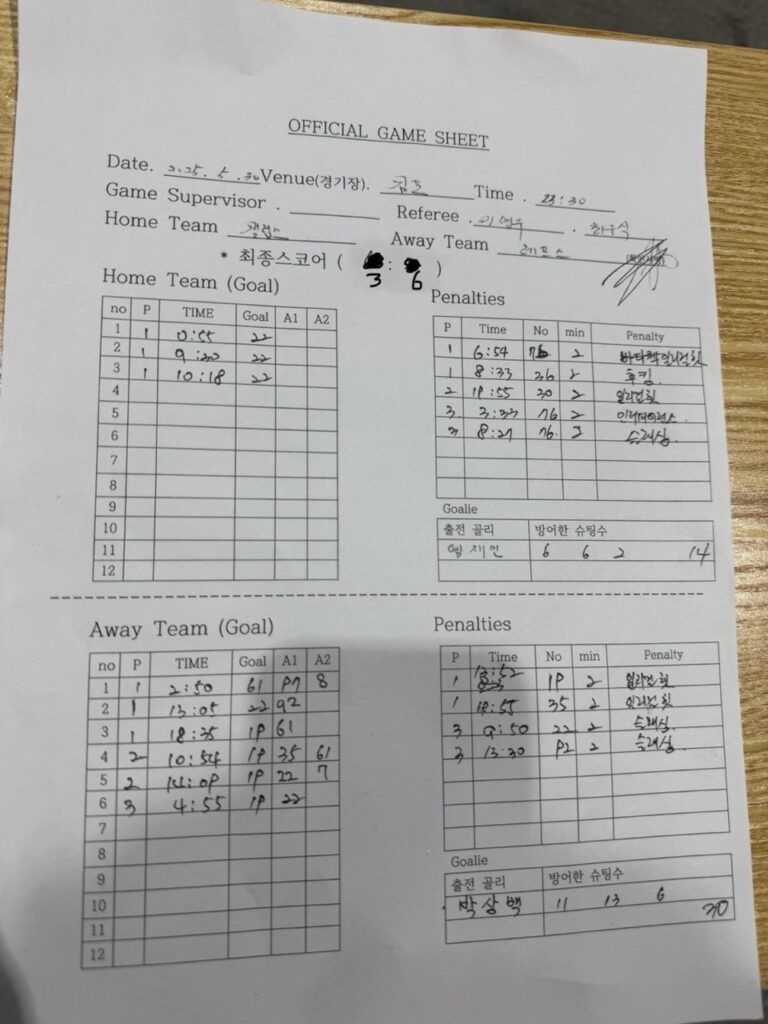 OFFICIAL GAME SHEET
Date. 2025. 5. 30 Venue(경기장). 김포 Time . 23:30
Game Supervisor . Referee .
Home Team Away Team
* 최종스코어 ( 3 : 6 )
Home Team (Goal)
no P TIME Goal A1 A2
1 1 0:55 22
2 1 9:20 22
3 1 10:18 22
4
5
6
7
8
9
10
11
12
Penalties
P Time No min Penalty
1 6:54 76 2
1 8:33 26 2 후킹.
2 19:55 30 2
3 3:33 76 2
3 8:27 76. 2 슬래싱.
Goalie
출전 골리 방어한 슈팅수
6 6 2 14
Away Team (Goal)
no P TIME Goal A1 A2
1 1 2:50 61 97 8
2 1 13:05 22 92
3 1 18:35 19 61
4 2 10:54 19 35 61
5 2 14:09 19 22 7
6 3 4:55 19 22
7
8
9
10
11
12
Penalties
P Time No min Penalty
1 13:52 19 2
1 19:55 35 2
3 9:50 22 2 슬래싱.
3 13:30 92 2 슬래싱.
Goalie
출전 골리 방어한 슈팅수
박상백 11 13 6 30